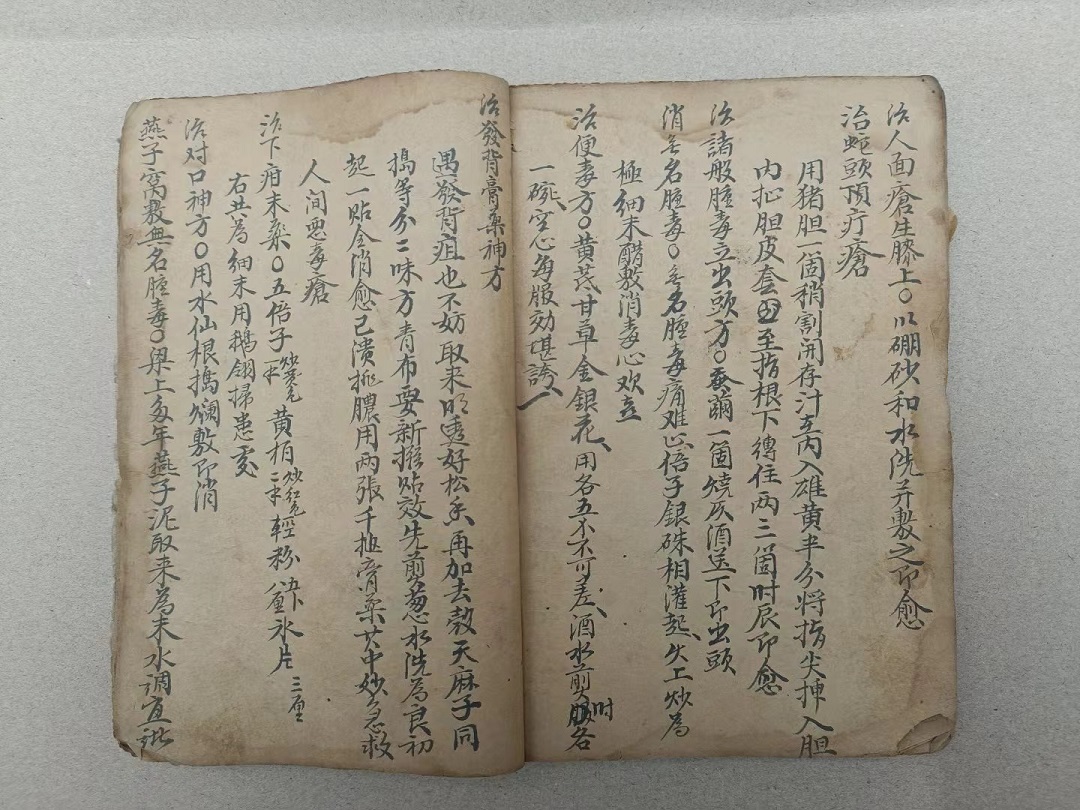 治人面瘡生膝上〇以硼砂和水洗并敷之即愈
治蛇頭頂疔瘡
用猪胆一個稍割開存汁在内入雄黄半分将指尖抻入胆
内扯胆皮套至指根下縛住两三箇时辰即愈
治諸般腫毒立出頭方〇蚕繭一個燒灰酒送下即出頭
消無名腫毒〇無名腫毒痛难止倍子銀硃相灌起火上炒為
極細末醋敷消毒心欢
治便毒方〇黄芪甘草金銀花用各五不可差酒水煎服时各
一碗空心每服効堪誇
治發背膏藥神方
遇發背疽也不妨取来明透好松香再加去殼天麻子同
搗等分二味方青布要新攤贴效先剪葱水洗為良初
起一贴全消愈已潰挑膿用两張千搥膏藥其中妙急救
人间惡毒瘡
治下疳末藥〇五倍子炒黄色二
黄柏炒红色二
輕粉
冰片三厘
右共為細末用鵝翎掃患處
治对口神方〇用水仙根搗爛敷即消
燕子窩敷無名腫毒〇梁上多年燕子泥取来為末水調宜